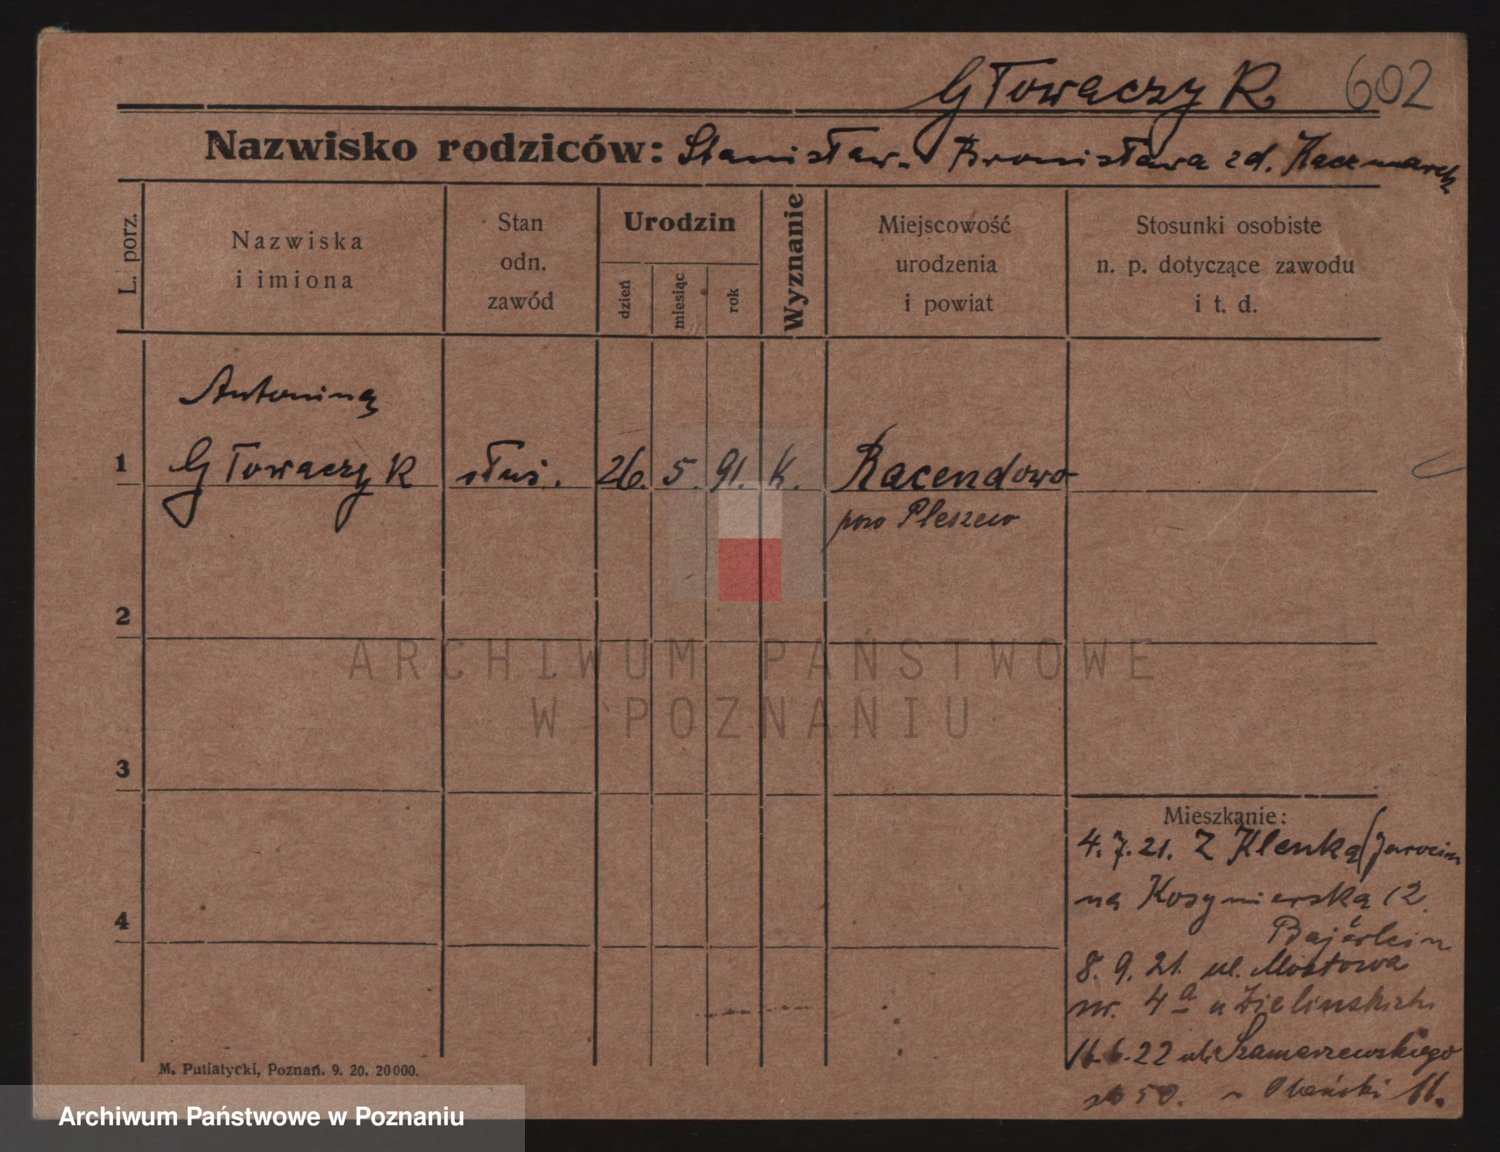 Głowaczyk 602
Nazwisko rodziców: Stanisław. Bronisława zd. Kaczmarek
L. porz.
Nazwiska
i imiona
Stan
odn.
zawód
Urodzin
dzień
miesiąc
rok
Wyznanie
Miejscowość
urodzenia
i powiat
Stosunki osobiste
n. p. dotyczące zawodu
i t. d.
Antonina
1 Głowaczyk służ. 26. 5. 91. K. Racendowo
pow Pleszew
2
ARCHIWUM PAŃSTWOWE
W POZNANIU
3
Mieszkanie:
4. 7. 21. Z Klenką (Jarocin
na Kosynierską 12.
4
8. 9. 21. ul. Mostowa
nr. 4a u Zielinskich.
16.6.22 ul. Szamarzewskiego
50.
M. Putiatycki, Poznań. 9. 20. 20000.
Archiwum Państwowe w Poznaniu